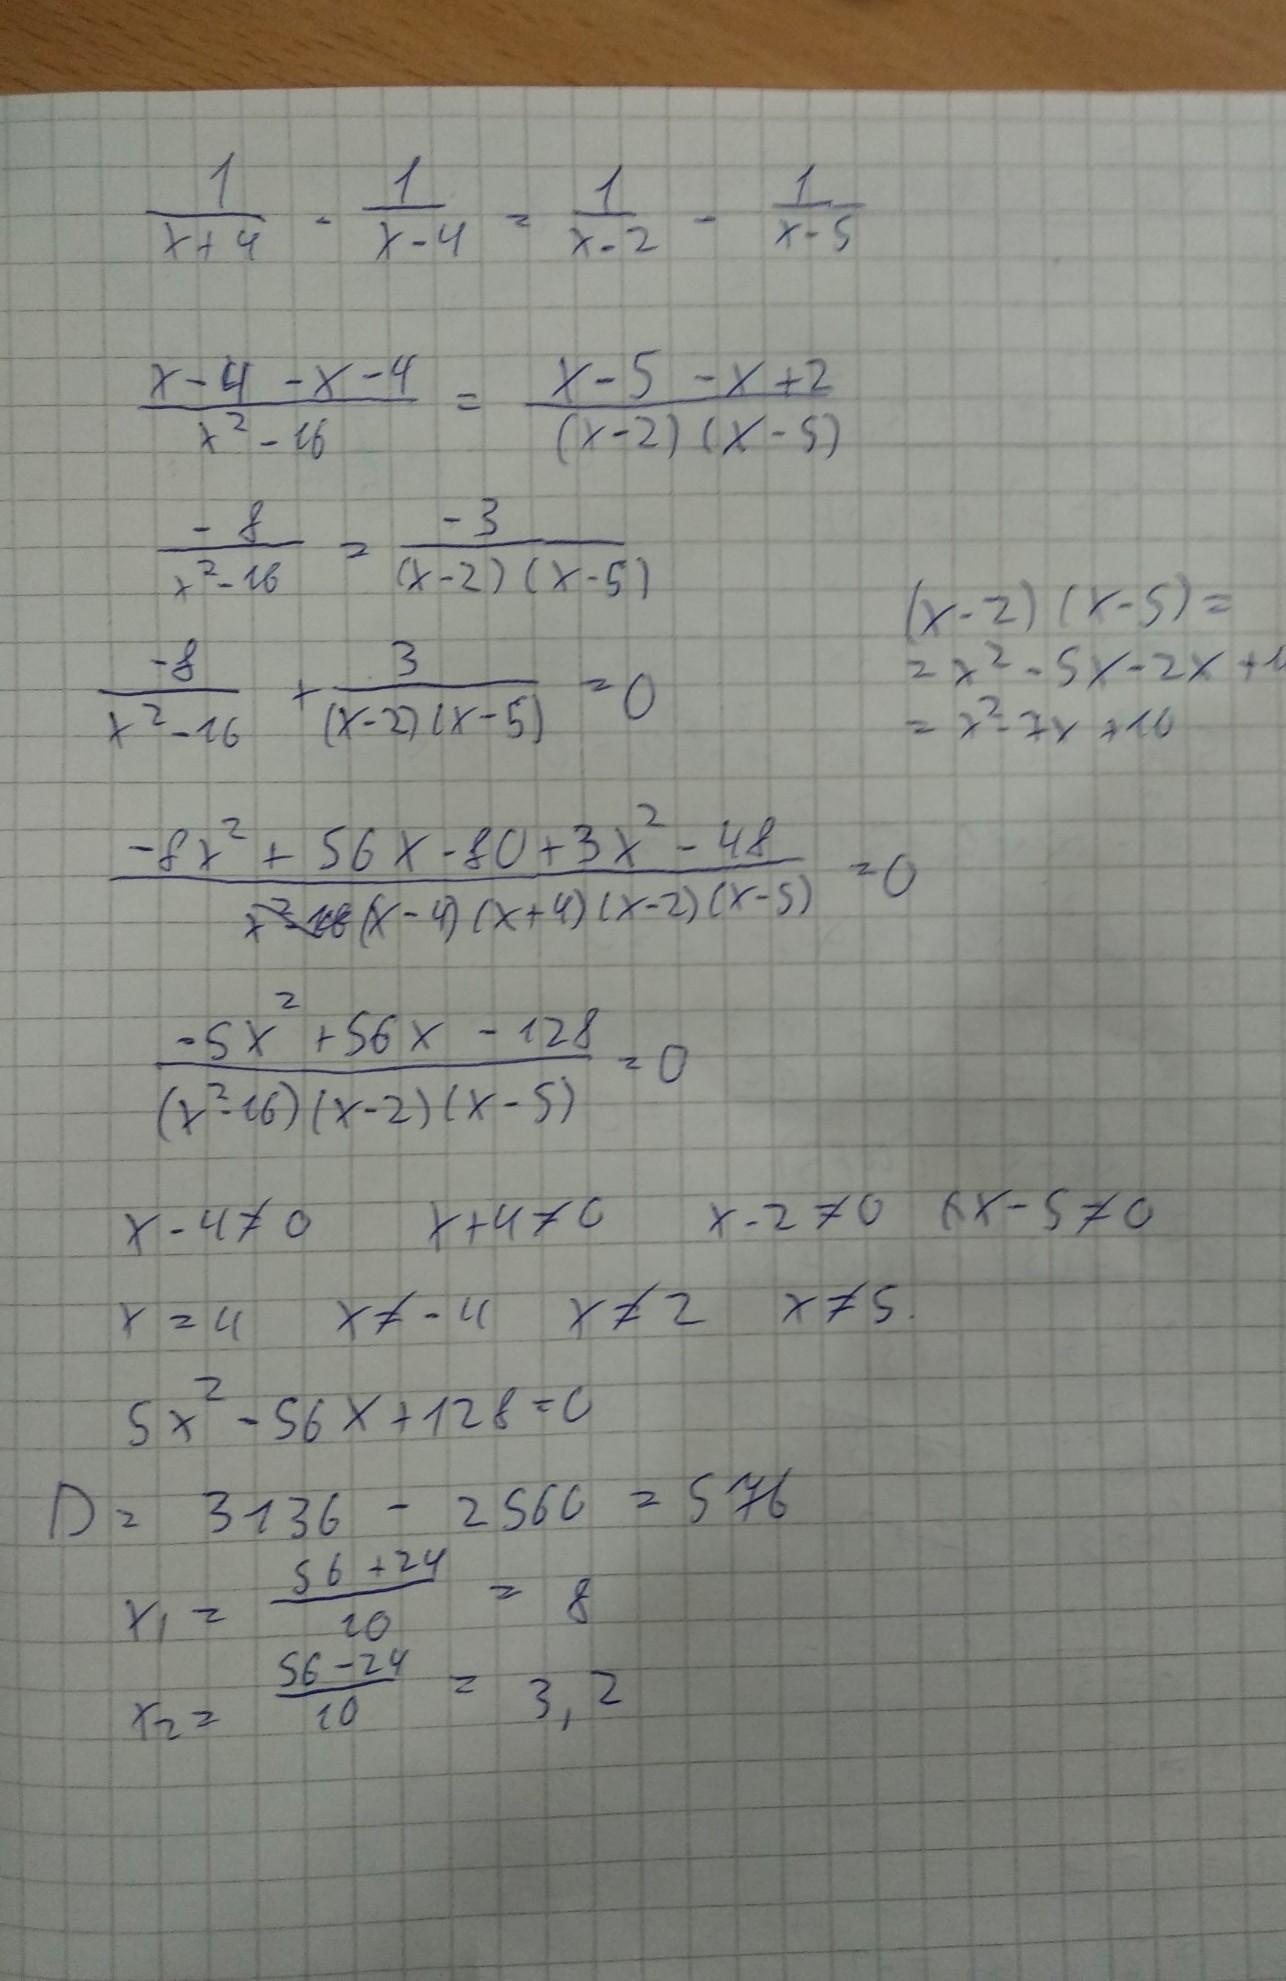 1/(x+4) - 1/(x-4) = 1/(x-2) - 1/(x-5)
(x-4-x-4)/(x²-16) = (x-5-x+2)/((x-2)(x-5))
-8/(x²-16) = -3/((x-2)(x-5))
(x-2)(x-5)=
= x²-5x-2x+1
= x²-7x+10
-8/(x²-16) + 3/((x-2)(x-5)) = 0
(-8x²+56x-80+3x²-48)/((x-4)(x+4)(x-2)(x-5)) = 0
(-5x²+56x-128)/((x²-16)(x-2)(x-5)) = 0
x-4≠0 x+4≠0 x-2≠0 x-5≠0
x=4 x≠-4 x≠2 x≠5.
5x²-56x+128=0
D= 3136 - 2560 = 576
x₁ = (56+24)/10 = 8
x₂ = (56-24)/10 = 3,2